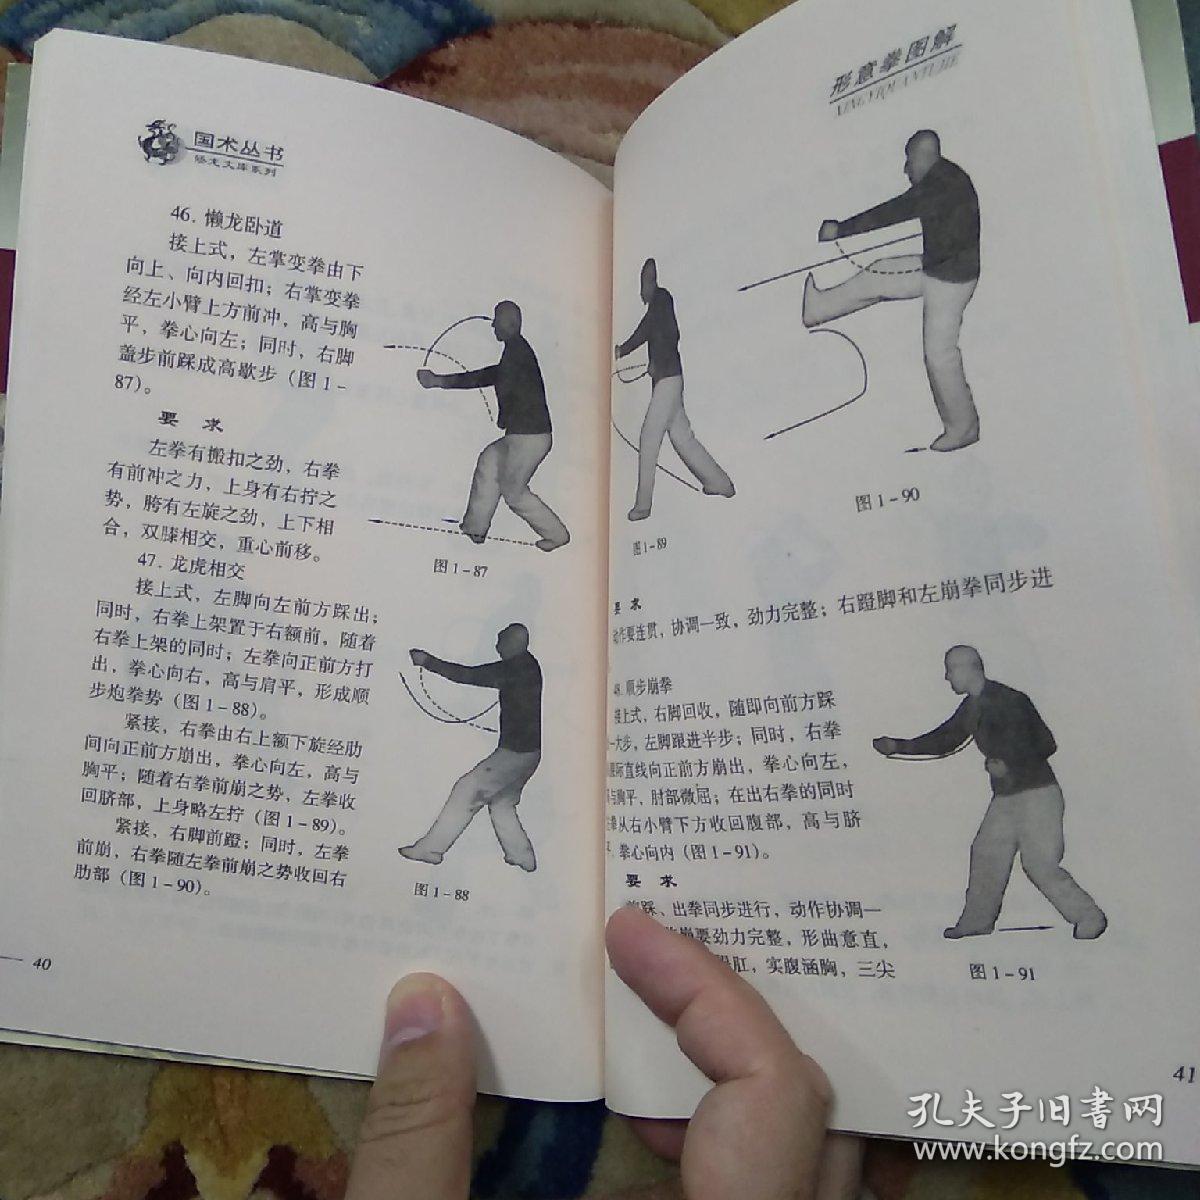 国术丛书
腾龙文库系列
46. 懒龙卧道
接上式，左掌变拳由下
向上、向内回扣；右掌变拳
经左小臂上方前冲，高与胸
平，拳心向左；同时，右脚
盖步前踩成高歇步（图1-
87）。
要 求
左拳有搬扣之劲，右拳
有前冲之力，上身有右拧之
势，胯有左旋之劲，上下相
合，双膝相交，重心前移。
图1-87
47. 龙虎相交
接上式，左脚向左前方踩出；
同时，右拳上架置于右额前，随着
右拳上架的同时；左拳向正前方打
出，拳心向右，高与肩平，形成顺
步炮拳势（图1-88）。
紧接，右拳由右上额下旋经肋
间向正前方崩出，拳心向左，高与
胸平；随着右拳前崩之势，左拳收
回脐部，上身略左拧（图1-89）。
紧接，右脚前蹬；同时，左拳
前崩，右拳随左拳前崩之势收回右
肋部（图1-90）。
图1-88
40
形意拳图解
XINGYIQUANTUJIE
图1-89
图1-90
要 求
动作要连贯，协调一致，劲力完整；右蹬脚和左崩拳同步进
48. 顺步崩拳
接上式，右脚回收，随即向前方踩
一大步，左脚跟进半步；同时，右拳
直线向正前方崩出，拳心向左，
与胸平，肘部微屈；在出右拳的同时
从右小臂下方收回腹部，高与脐
平，拳心向内（图1-91）。
要 求
前踩、出拳同步进行，动作协调一
崩要劲力完整，形曲意直，
肛，实腹涵胸，三尖
图1-91
41
孔夫子旧书网
www.kongfz.com